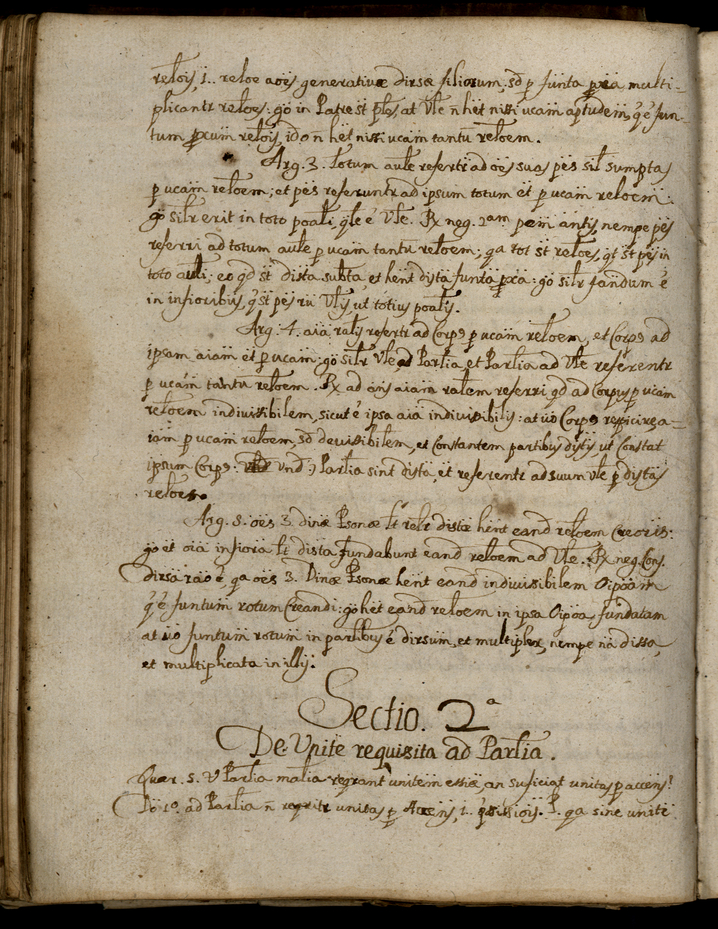 relõis, i.. reloe aoẽs generativæ dirsæ filiorum, sḋ p funta pxia multi-
plicantr reloẽs: gȯ in Patre st ples, at Vle ñ het nissi ucam aptudem, q̃ ẽ fun-
tum pxum relõis, ido ñ het nissi ucam tantu reloem.
Arg. 3. totum aule refertr ad oẽs suas pẽs sil sumptas
p ucam reloem; et pẽs referuntr ad ipsum totum et p ucam reloem
gȯ silr erit in toto poali, q̃le ẽ Vle. Rx neg. 2am pem antis, nempe pẽs
referri ad totum aule p ucam tantu reloem; qa tot st reloẽs, qt st pẽs in
toto auli; eo qḋ st dista subta, et hent dista funta pxa: gȯ silr fandum ẽ
in inferioribus, q̃ st pẽs Vlis, ut totius poalis.
Arg. 4. aia ralis refertr ad Corpꝯ p ucam reloem, et Corpꝯ ad
ipsam aiam et p ucam: gȯ silr Vle ad Parlia, et Parlia ad Vle referentr
p ucam tantu reloem. Rx ad ans aiam ralem referri qḋ ad Corpus p ucam
reloem indivissibilem, sicut ẽ ipsa aia indivissibilis: at uo Corpꝯ respicire a-
iam p ucam reloem, sḋ devissibilem, et Constantem partibus distis ut Constat
ipsum Corpꝯ: Vnd Parlia sint dista, et referentr ad suum Vle p distas
reloẽs.
Arg. 5. oẽs 3. dinæ Psonæ lt relr distæ hent eand reloem Creoris:
gȯ et oia infiora lt dista fundabunt eand reloem ad Vle. Rx neg. Cons.
dirsa rao ẽ, qa oẽs 3. Dinæ Psonæ hent eand indivissibilem Oipoam
q̃ ẽ funtum rotum Creandi: gȯ het eand reloem in ipsa Oipoa fundatam
at uo funtum rotum in parlibus ẽ dirsum, et multiplex, nempe na dissa,
et multiplicata in illis.
Sectio. 2ᵃ
De Unite requisita ad Parlia.
Quær. 5. V Parlia malia reqrant unitem essiæ, an suficiat unitas p accens?
Do 1º. ad Parlia ñ reqritr unitas p Accens, i.. q̃ssissiois. P. qa sine unite